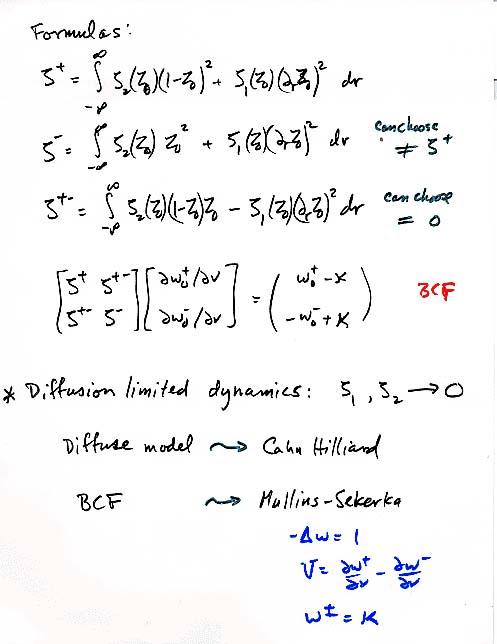 Formulas:
ζ⁺ = ∫_{-∞}^{∞} ζ₂(z₀)(1-z₀)² + ζ₁(z₀)(∂ᵣz₀)² dr
ζ⁻ = ∫_{-∞}^{∞} ζ₂(z₀) z₀² + ζ₁(z₀)(∂ᵣz₀)² dr can choose ≠ ζ⁺
ζ⁺⁻ = ∫_{-∞}^{∞} ζ₂(z₀)(1-z₀)z₀ - ζ₁(z₀)(∂ᵣz₀)² dr can choose = 0
[ζ⁺ ζ⁺⁻; ζ⁺⁻ ζ⁻] [∂w₀⁺/∂ν; ∂w₀⁻/∂ν] = (w₀⁺ - κ; -w₀⁻ + κ) BCF
* Diffusion limited dynamics: ζ₁, ζ₂ → 0
Diffuse model ⇝ Cahn Hilliard
BCF ⇝ Mullins-Sekerka
-Δw = 1
V = ∂w⁺/∂ν - ∂w⁻/∂ν
w± = κ